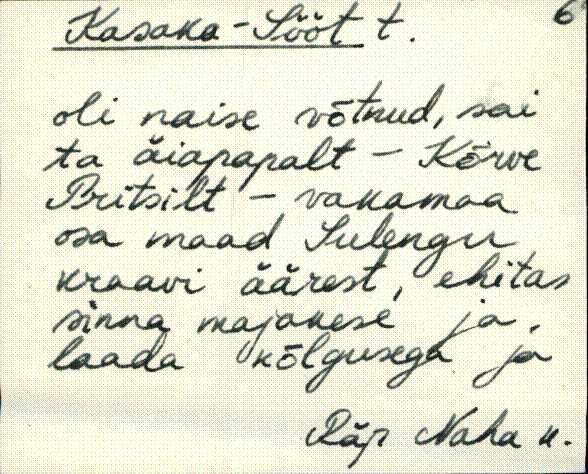 Kasaka-Sööt t. 6
oli naise võtnud, sai
ta äiapapalt - Kõrve
Pritsilt - vakamaa
osa maad Sulengu
kraavi äärest, ehitas
sinna majakese ja
laada kõlgusega ja
Räp Naha k.